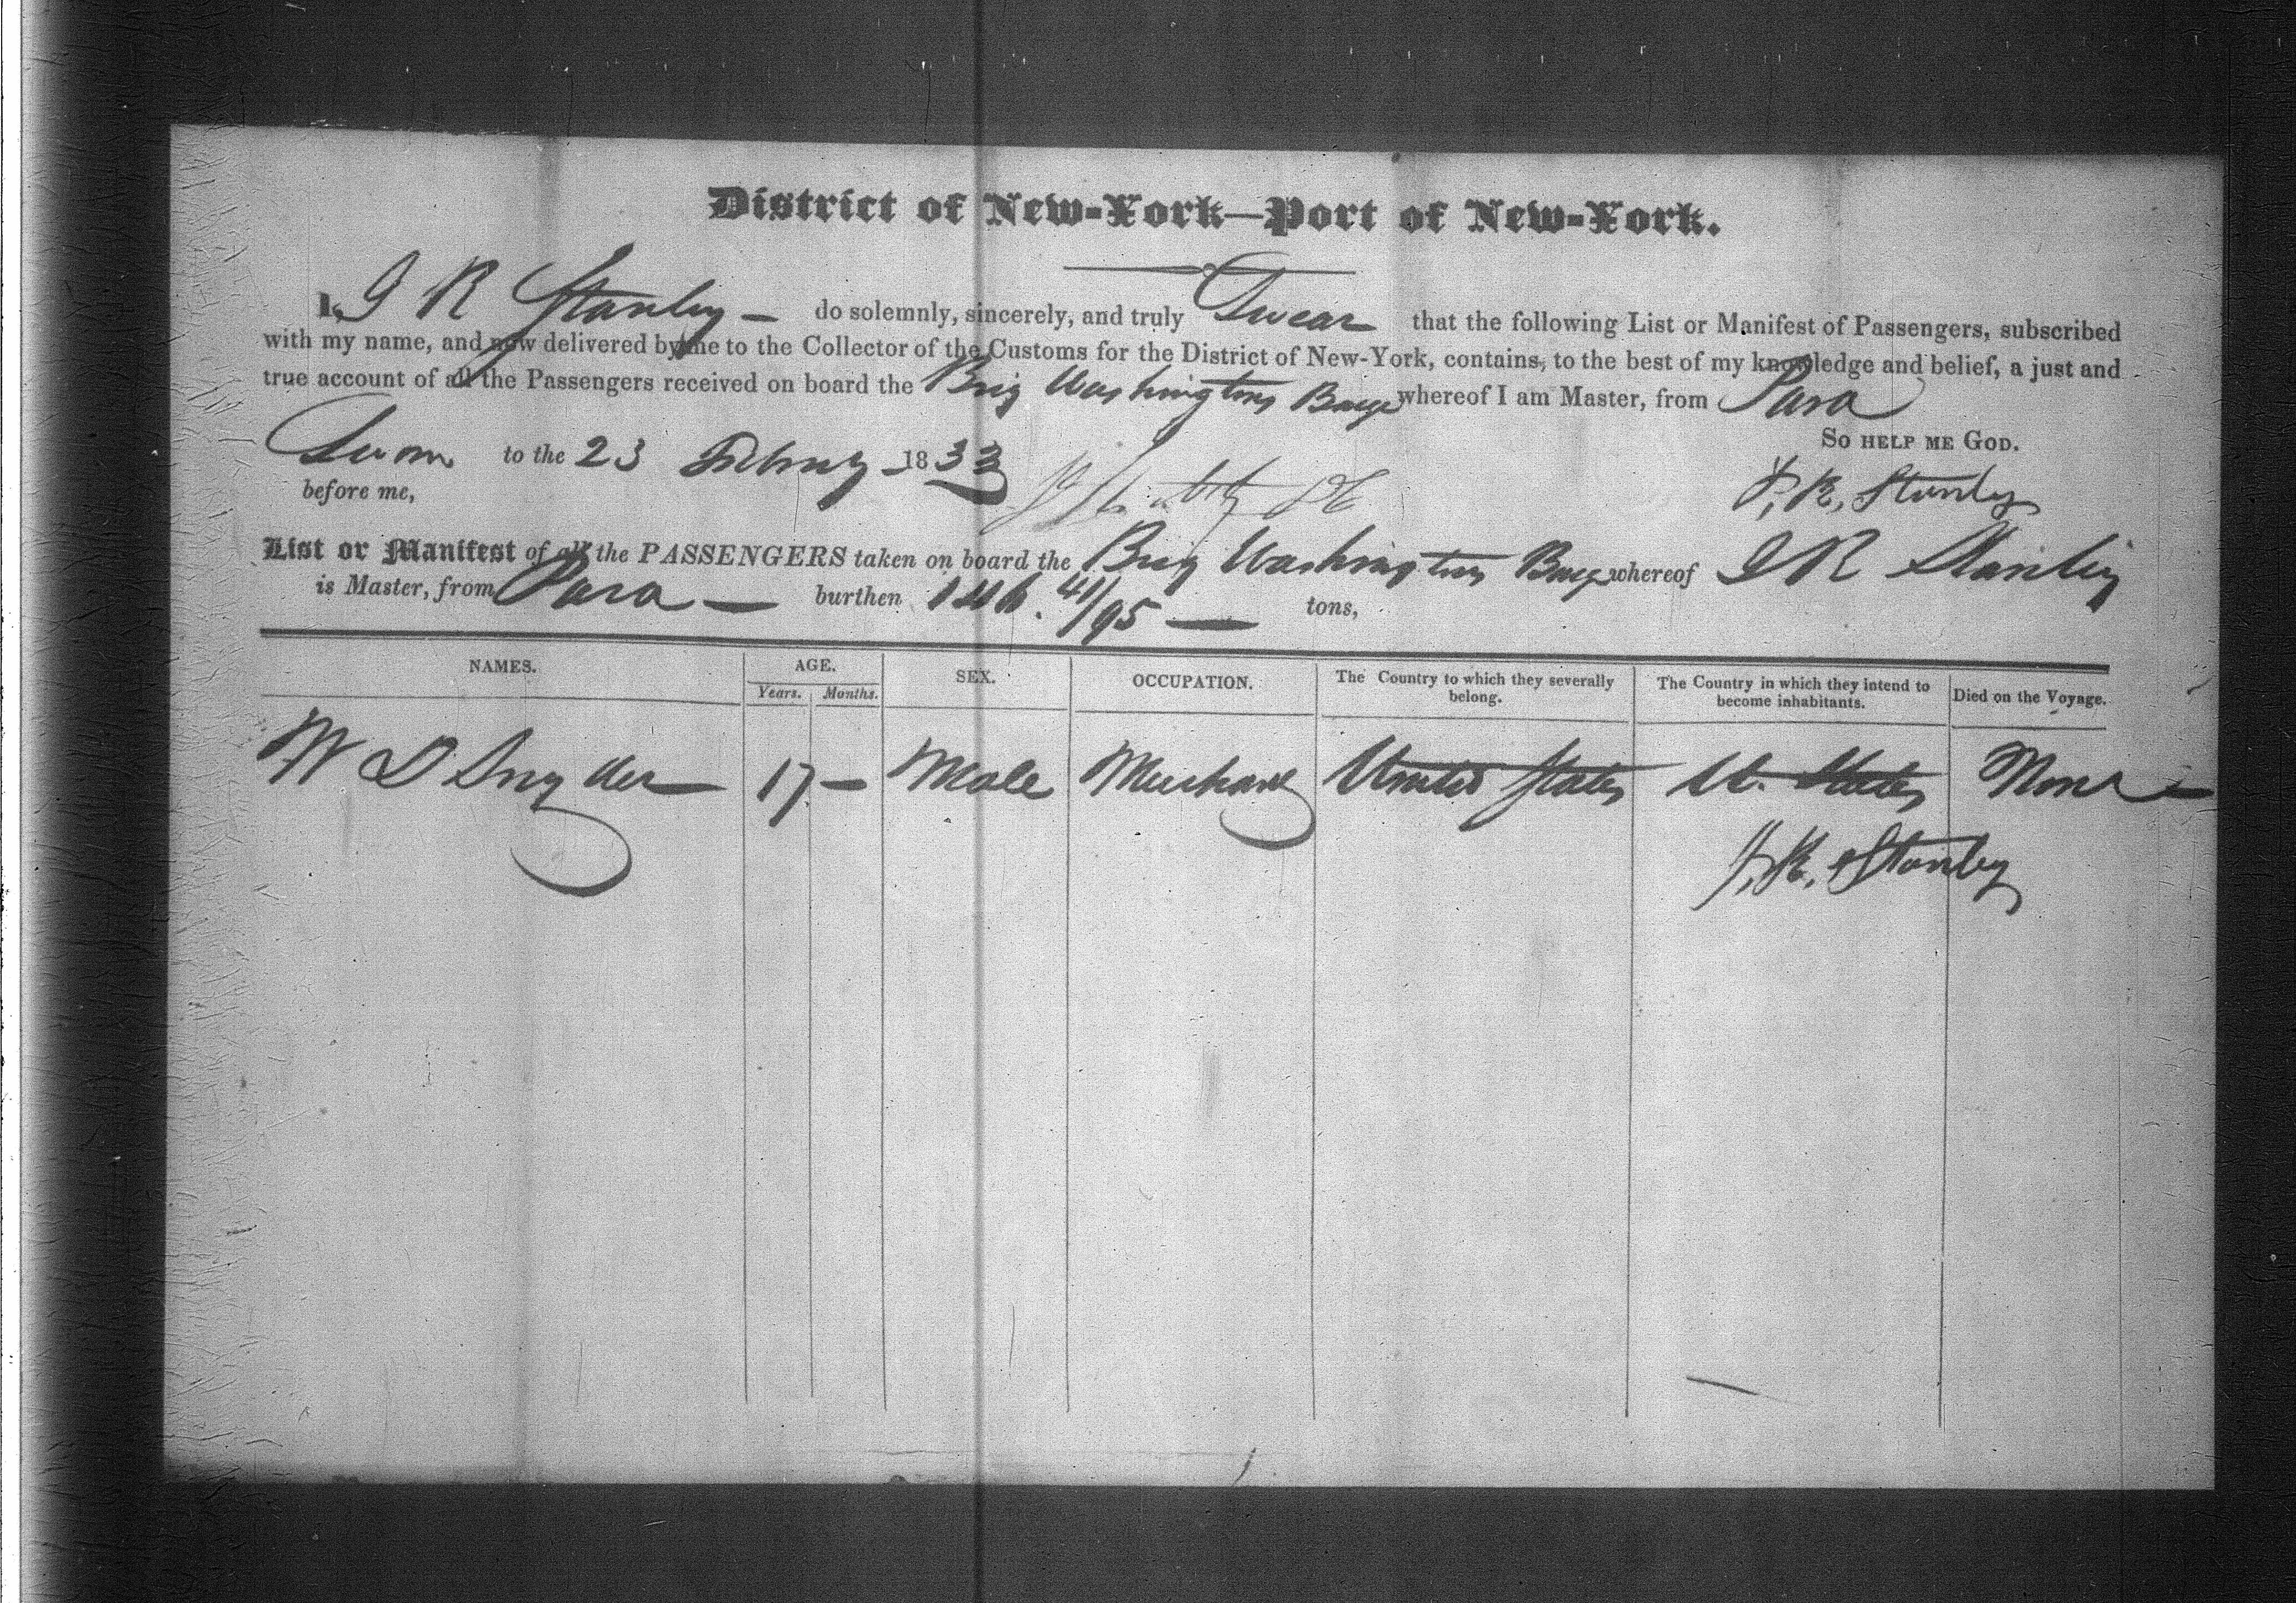 District of New-York—Port of New-York.
I, J R Stanley — do solemnly, sincerely, and truly Swear that the following List or Manifest of Passengers, subscribed
with my name, and now delivered by me to the Collector of the Customs for the District of New-York, contains, to the best of my knowledge and belief, a just and
true account of all the Passengers received on board the Brig Washingtons Barge whereof I am Master, from Para
So help me God.
Sworn to the 23 February 1833
before me,
J. R. Stanley
List or Manifest of all the PASSENGERS taken on board the Brig Washingtons Barge whereof J R Stanley
is Master, from Para — burthen 146. 41/95 — tons,
NAMES. AGE. SEX. OCCUPATION. The Country to which they severally belong. The Country in which they intend to become inhabitants. Died on the Voyage.
Years. Months.
W D Snyder 17 — Male Merchant United States U. States None
J. R. Stanley